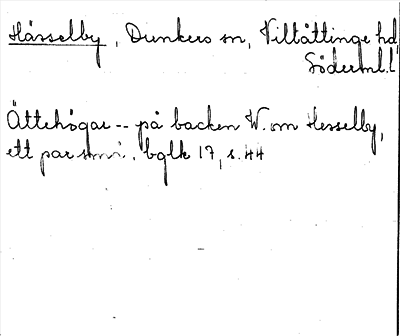 Hässelby, Dunkers sn, Villåttinge hd,
Söderml.l
Ättehögar -- på backen W. om Hesselby,
ett par små. bglk 17, s. 44